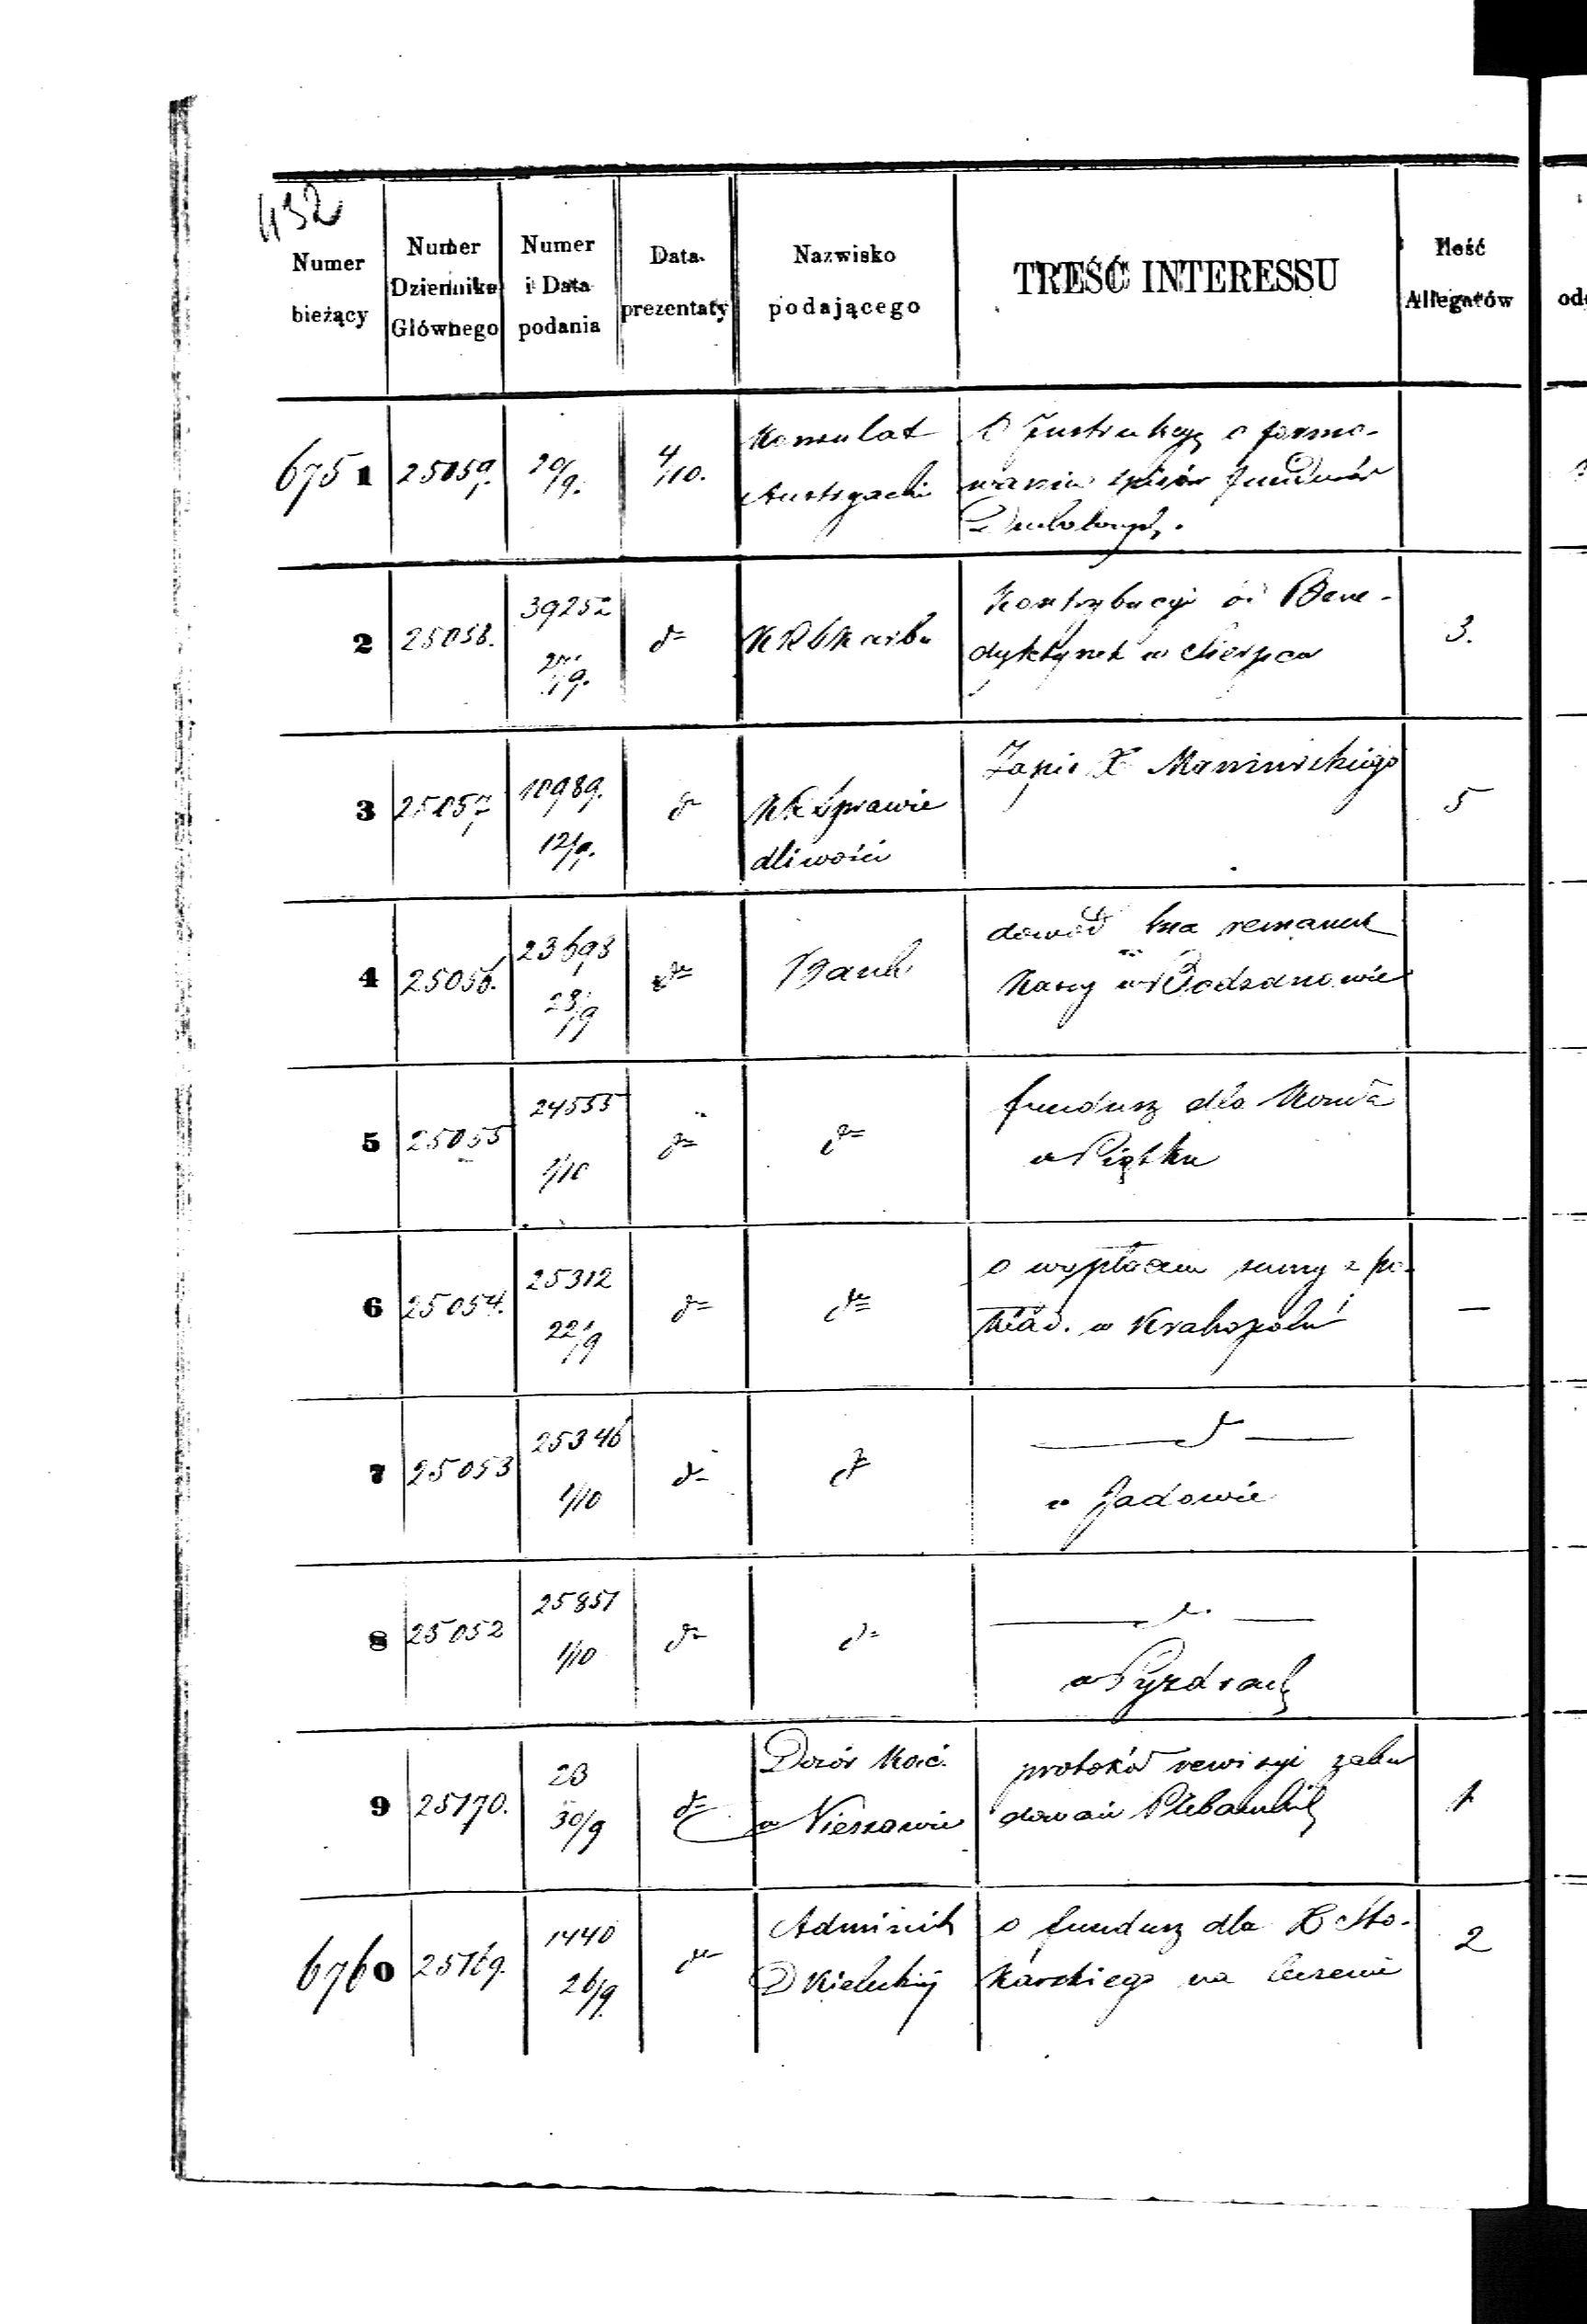 432
Numer bieżący
Numer Dziennika Głównego
Numer i Data podania
Data prezentaty
Nazwisko podającego
TREŚĆ INTERESSU
Ilość Allegatów
6751 25059. 20/9. 4/10. Konsulat Austryacki
O Instrukcyę o formo-
waniu spisów funduszów
2 25058. 39252 d= KRSkarbu
Kontrybucyi od Bene-
dyktynek w Sierpcu
3.
3 25057 10989. 12/9. d= KR Sprawie
dliwości
Zapis X
5
4 25056. 23693 28/9 d= Bank
dowód na remanent
Kassy w Bodzanowie
5 25055 24555 1/10 d= d=
fundusz dla
w Piątku
6 25054. 25312 22/9 d= d=
o wypłacenie summy z po-
w Krasnopolu
—
7 25053 25346 1/10 d= d=
— d —
w Jadowie
8 25052 25851 1/10 d= d=
— d —
w Pyzdrach
9 25170. 23 30/9 d= Dozór Kośc.
w Nieszawie
protokół rewizyi zabu
dowań Plebańskich
1
6760 25169. 1440 26/9. d= Administr
D Kieleckiej
o fundusz dla X Sto-
karskiego na leczenie
2